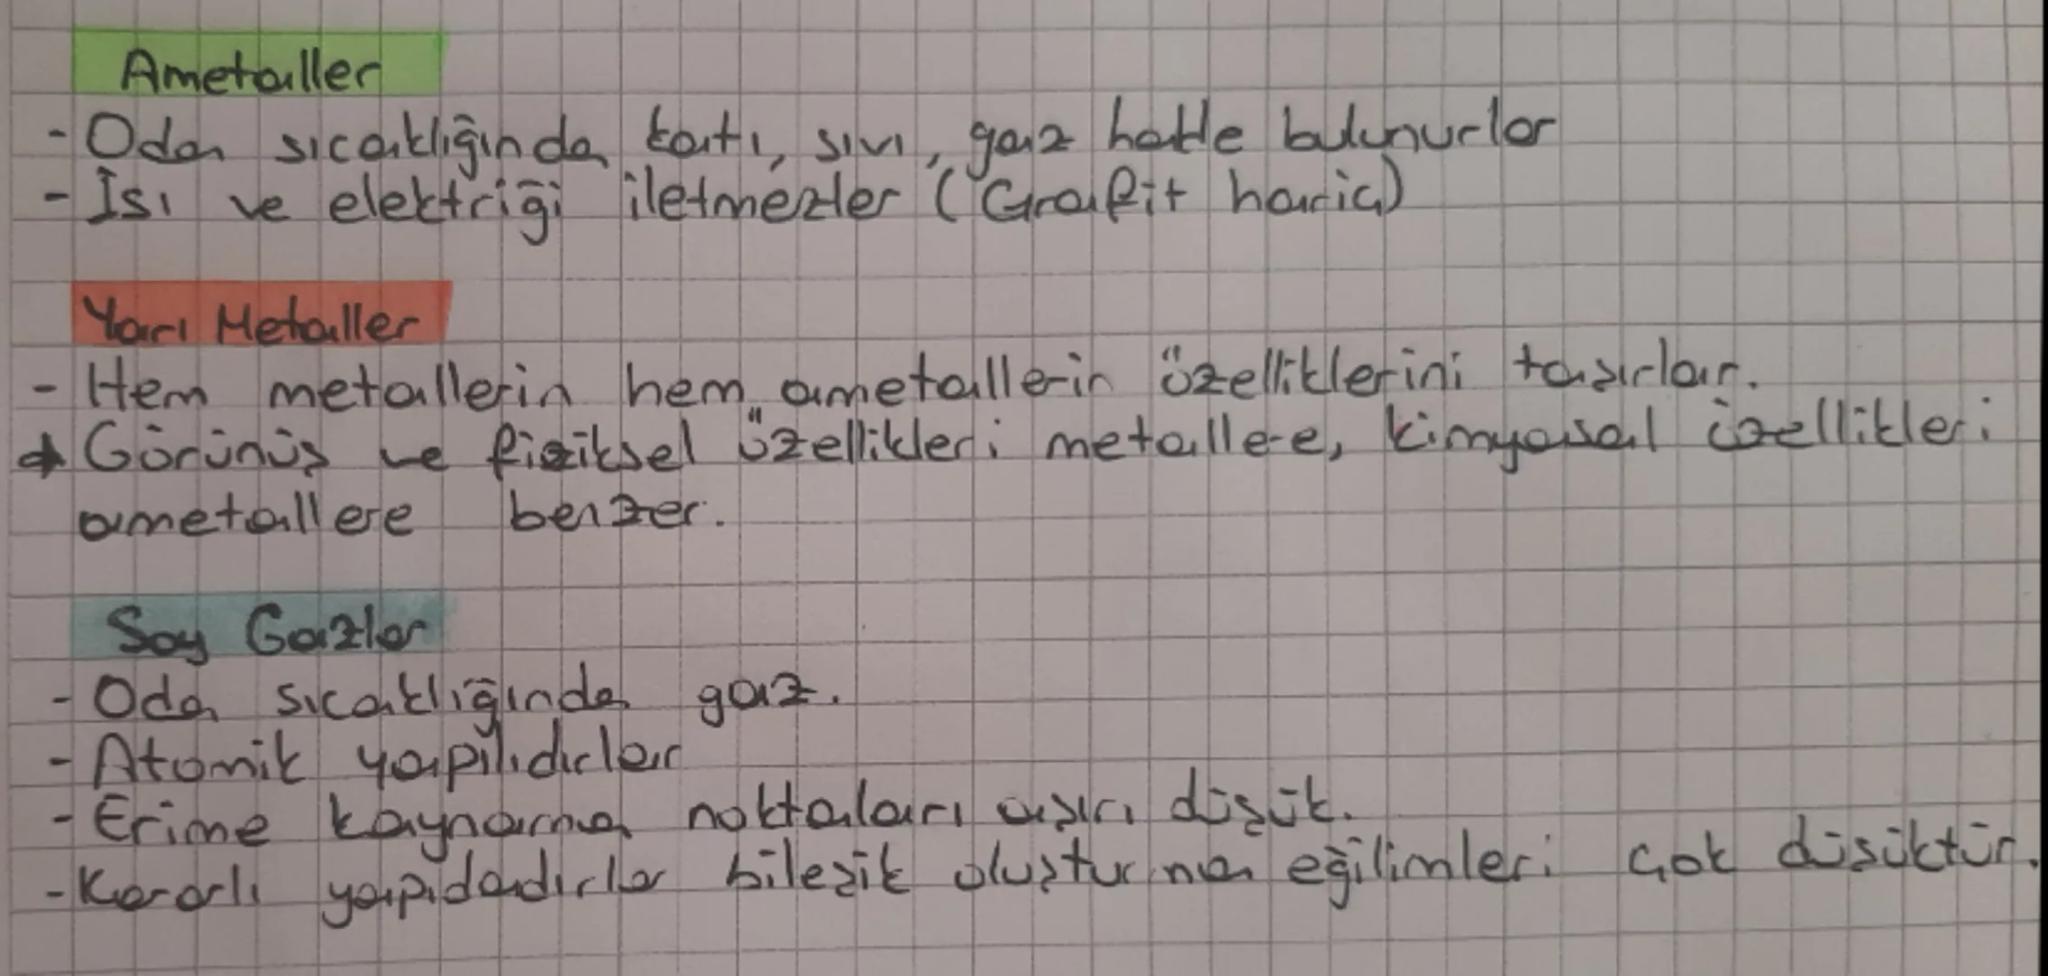 Ametaller
- Oda sıcaklığında katı, sıvı, gaz halde bulunurlar
- Isı ve elektriği iletmezler (Grafit hariç)
Yarı Metaller
- Hem metallerin hem ametallerin özelliklerini taşırlar.
→ Görünüş ve fiziksel özellikleri metallere, kimyasal özellikleri
ametallere benzer.
Soy Gazlar
- Oda sıcaklığında gaz.
- Atomik yapılıdırlar
- Erime kaynama noktaları aşırı düşük.
- Kararlı yapıdadırlar bileşik oluşturma eğilimleri çok düşüktür.